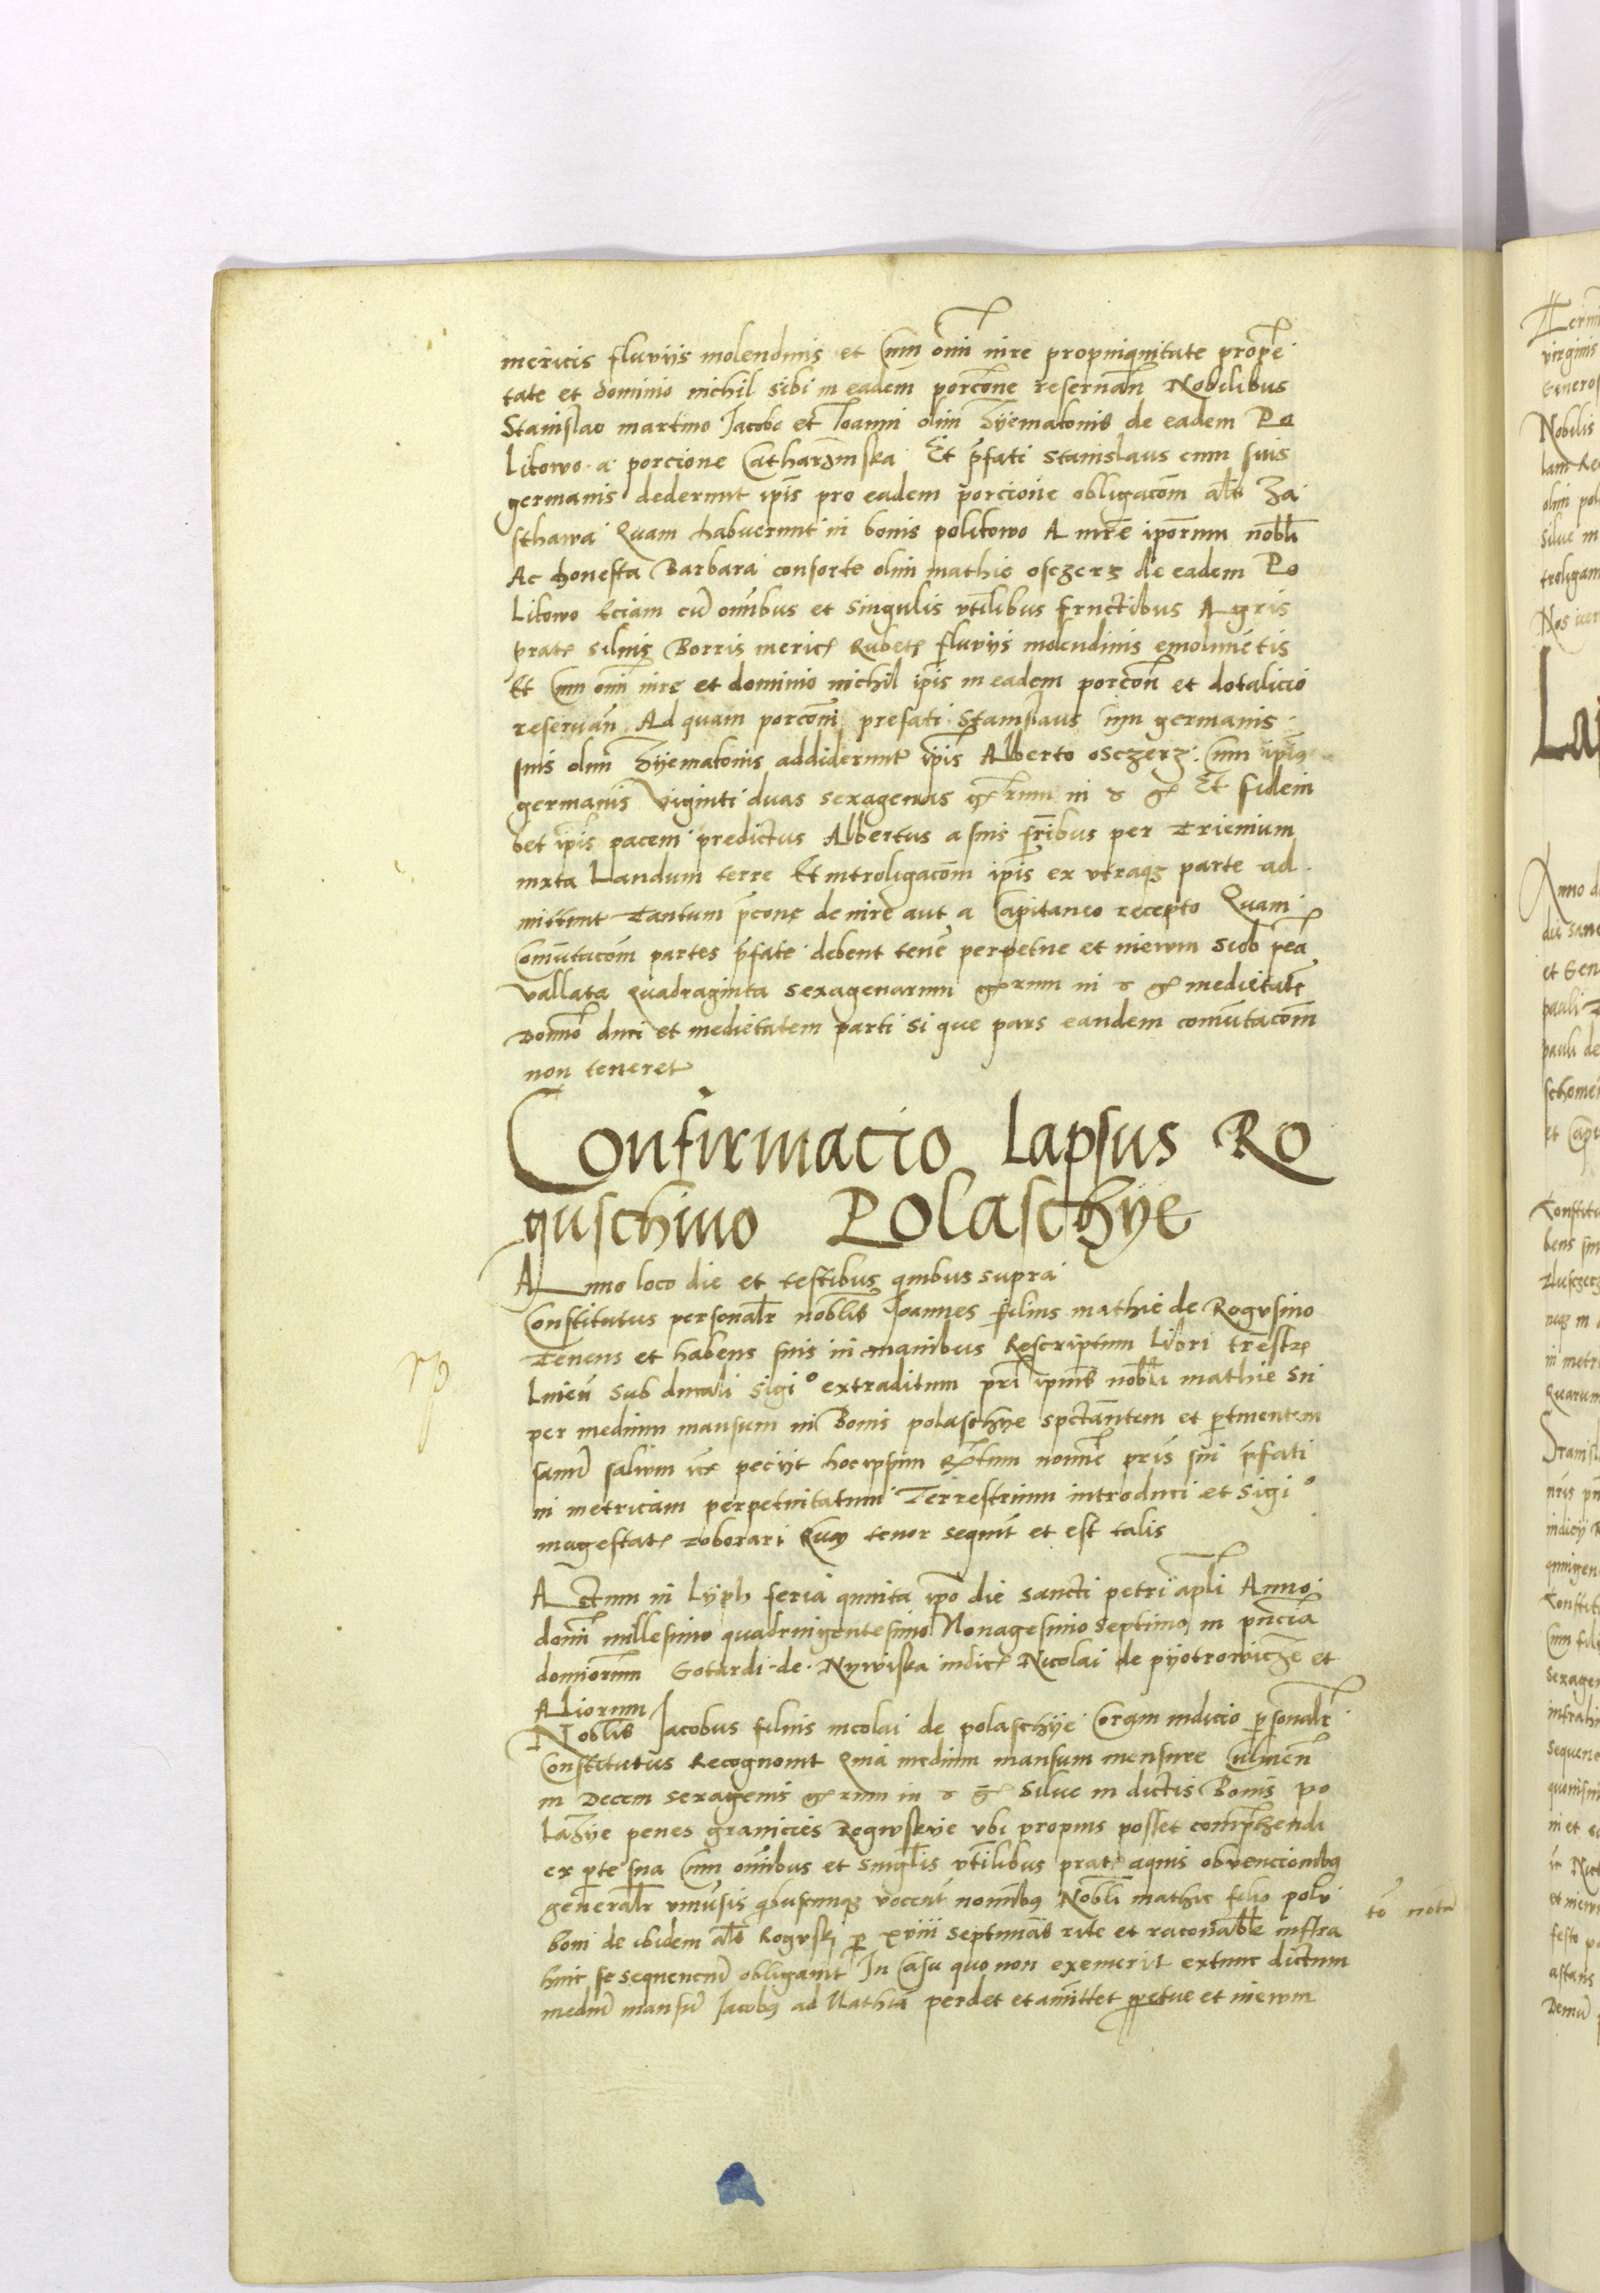 mericis fluviis molendinis et Cum omi iure propinquitate prope
tate et dominio nichil sibi in eadem porcione reservan Nobilibus
Stanislao martino Jacobo et Joanni olim Zyematonis de eadem Po
litowo a porcione Catharzinska Et pfati Stanislaus cum suis
germanis dederunt ipis pro eadem porcione obligacom als Za
sthawa Quam habuerunt in bonis politowo A mre iporum nobli
Ac honesta Barbara consorte olim mathie osczerz de eadem Po
litowo Eciam cu omibus et singulis vtilibus fructibus Agris
prat silvis Borris meric Rubet fluviis molendinis emolumetis
Et Cum omi iure et dominio nichil ipis in eadem porcon et dotalicio
reservan Ad quam porcom prefati Stanislaus Cum germanis
suis olim Zyematonis addiderunt ipis Alberto osczerz Cum ipius
germanis Viginti duas sexagenas grrum in t gr Et fideiu
bet ipis pacem predictus Albertus a suis fribus per Trienium
iuxta Laudum terre Et introligacom ipis ex vtraqz parte ad
mittunt Tantum pcone de iure aut a Capitaneo recepto Quam
Comutacom partes pfate debent tene perpetue et inewm sub pea
vallata Quadraginta sexagenarum grrum in t gr medietate
Domo duci et medietatem parti si que pars eandem comutacom
non teneret
Confirmacio lapsus Ro
guschino Polaschye
Anno loco die et testibus quibus supra
Constitutus personalr noblis Joannes filius mathie de Rogusino
Tenens et habens suis in manibus Rescriptum libri trestr
Livien sub ducali sigi extraditum pri ipius nobli mathie sui
per medium mansum in Bonis polaschye spctantem et ptinentem
sanu salvum petiit hoc ipsum Rptum nomie pris sui pfati
in metricam perpetuitatum Terrestrium introduci et Sigi
magestat roborari Quay tenor sequit et est talis
Actum in Lyph feria quinta ipo die sancti petri apli Anno
domi millesimo quadringentesimo Nonagesimo septimo in pncia
dominorum Gotardi de Nywiska iudic Nicolai de pyotrowicze et
Aliorum
Noblis Jacobus filius nicolai de polaschye Coram iudicio psonalr
Constitutus Recognovit Quia medium mansum mensure Culmen
in Decem sexagenis grrum in t gr Silve in dictis Bonis Po
lazye penes granicies Roguskye vbi propius posset comphendi
ex pte sua Cum omibus et singlis vtilibus prat aquis obvencionibus
generalr vniusis qbuscumqz vocent nomibus Nobli mathie filio polu
boni de ibidem als Roguski p xviii septimas rite et raconable infra
hinc se sequencu obligavit In Casu quo non exemerit extunc dictum
mediu mansu Jacobus ad Mathia perdet et amittet ppetue et inewm